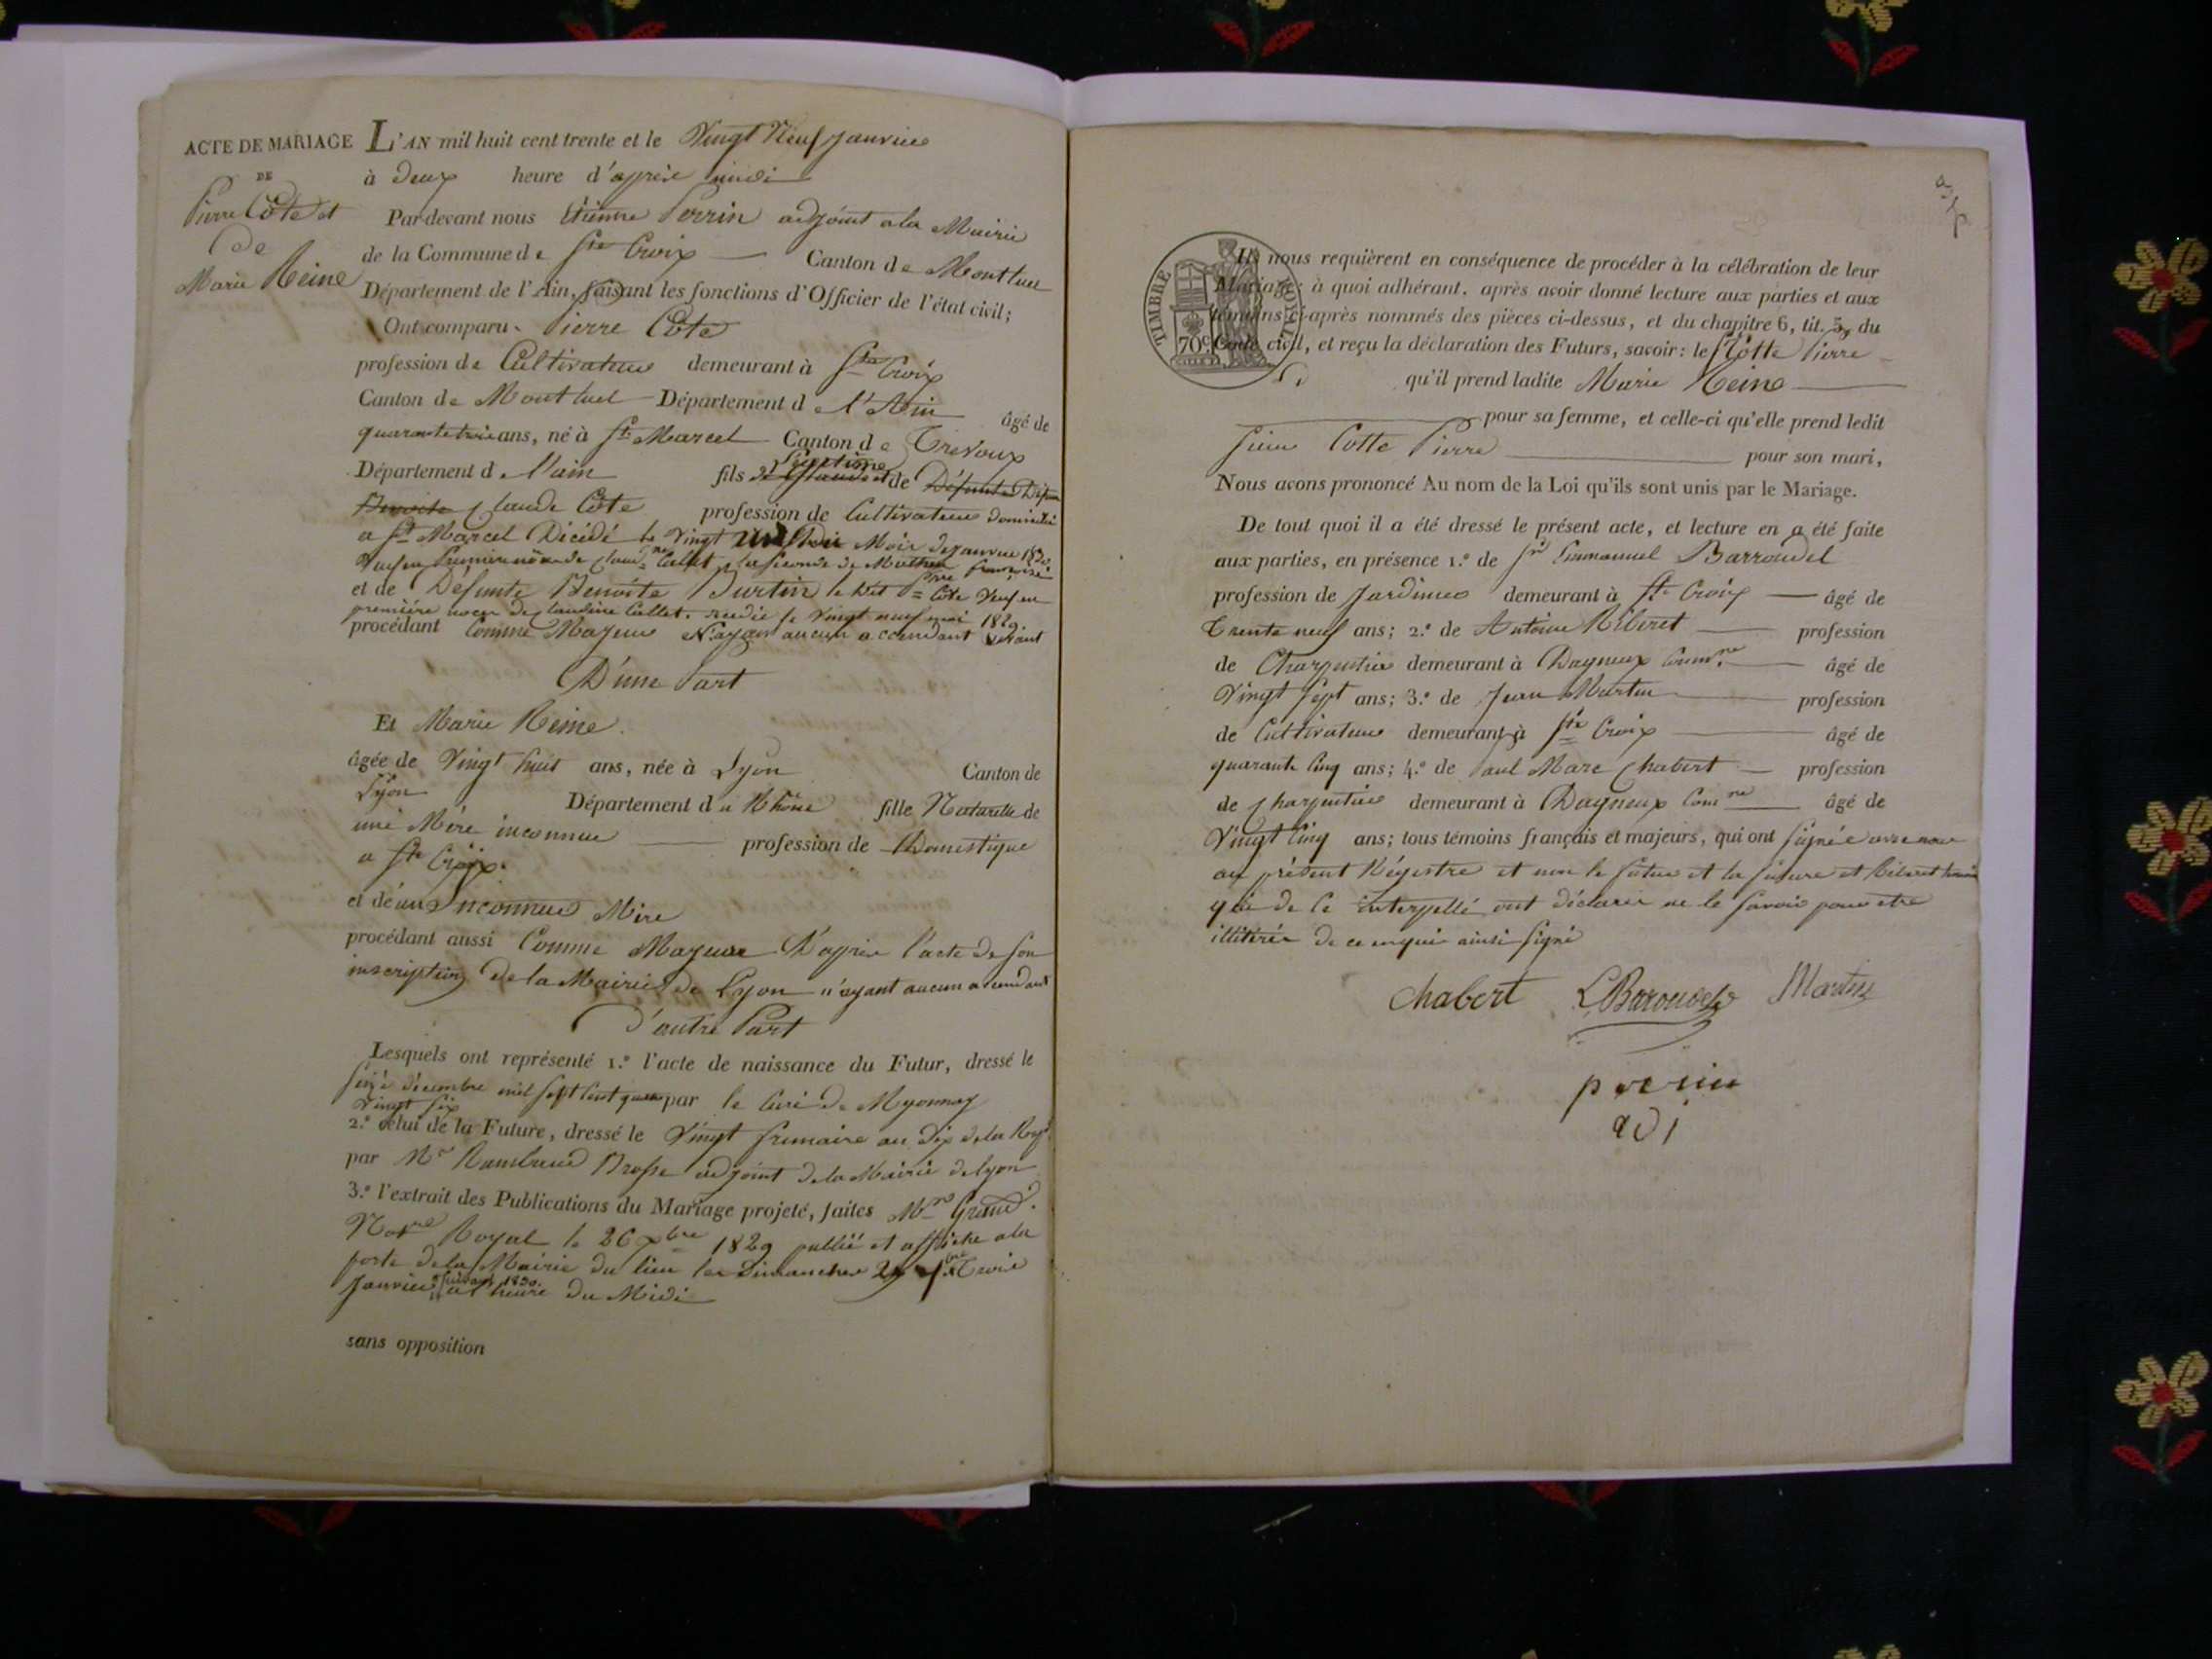 ACTE DE MARIAGE
DE
Pierre Côte et
de
Marie Reine
L'AN mil huit cent trente et le Vingt Neuf Janvier
à deux heure d'après midi
Pardevant nous Etienne Perrin adjoint a la Mairie
de la Commune de Ste Croix Canton de Montluel
Département de l'Ain, faisant les fonctions d'Officier de l'état civil;
Ont comparu Pierre Côte
profession de Cultivateur demeurant à Ste Croix
Canton de Montluel Département de l'Ain âgé de
quarante trois ans, né à St Marcel Canton de Trevoux
Département de l'ain fils Légitime de
Claude Côte profession de Cultivateur domicilié
a St Marcel Décédé le Vingt Mois de janvier 1830
et de Défunte Benoite Burtin le dit Pre Côte Veuf en
première noces de Claudine Collet décédé le Vingt neuf mai 1829
procédant Comme Majeur N'ayant aucun accendant vivant
D'une Part
Et Marie Reine
âgée de Vingt huit ans, née à Lyon Canton de
Lyon Département du Rhône fille Naturelle de
une Mère inconnue profession de Domestique
a Ste Croix.
et de inconnue Mère
procédant aussi Comme Majeure D'après l'acte de son
inscription de la Mairie de Lyon n'ayant aucun accendant
d'autre Part
Lesquels ont représenté 1.º l'acte de naissance du Futur, dressé le
seize décembre mil sept cent quatre par le Curé de Myonnay
Vingt six
2.º celui de la Future, dressé le Vingt frimaire an dix de la Rep.
par Mr Rambaud Brosse adjoint de la Mairie de lyon
3.º l'extrait des Publications du Mariage projeté, faites Grand
Notre Royal le 26 Xbre 1829 publié et affiché a la
porte de la Mairie du lieu les Dimanches 27 Xbre Trois
Janvier suivant 1830. a l'heure du Midi
sans opposition
TIMBRE ROYAL
70c
Ils nous requièrent en conséquence de procéder à la célébration de leur
Mariage; à quoi adhérant. après avoir donné lecture aux parties et aux
témoins ci-après nommés des pièces ci-dessus, et du chapitre 6, tit. 5, du
Code civil, et reçu la déclaration des Futurs, savoir: le Sr Cotte Pierre
qu'il prend ladite Marie Reine
pour sa femme, et celle-ci qu'elle prend ledit
Sieur Cotte Pierre pour son mari,
Nous avons prononcé Au nom de la Loi qu'ils sont unis par le Mariage.
De tout quoi il a été dressé le présent acte, et lecture en a été faite
aux parties, en présence 1.º de Sr Emmanuel Barroudel
profession de Jardinier demeurant à Ste Croix âgé de
Trente neuf ans; 2.º de Antoine Riberet profession
de Charpentier demeurant à Dagneux Comne âgé de
Vingt Sept ans; 3.º de Jean Martin profession
de Cultivateur demeurant à Ste Croix âgé de
quarante Cinq ans; 4.º de Paul Marc Chabert profession
de Charpentier demeurant à Dagneux Comne âgé de
Vingt Cinq ans; tous témoins français et majeurs, qui ont signée avec nous
au présent Régistre et non le futur et la future et Riberet
qui de ce interpellé ont déclaré ne le savoir pour etre
illitéré de ce enquis ainsi signé
Chabert Barroudel Martin
perrin
adj